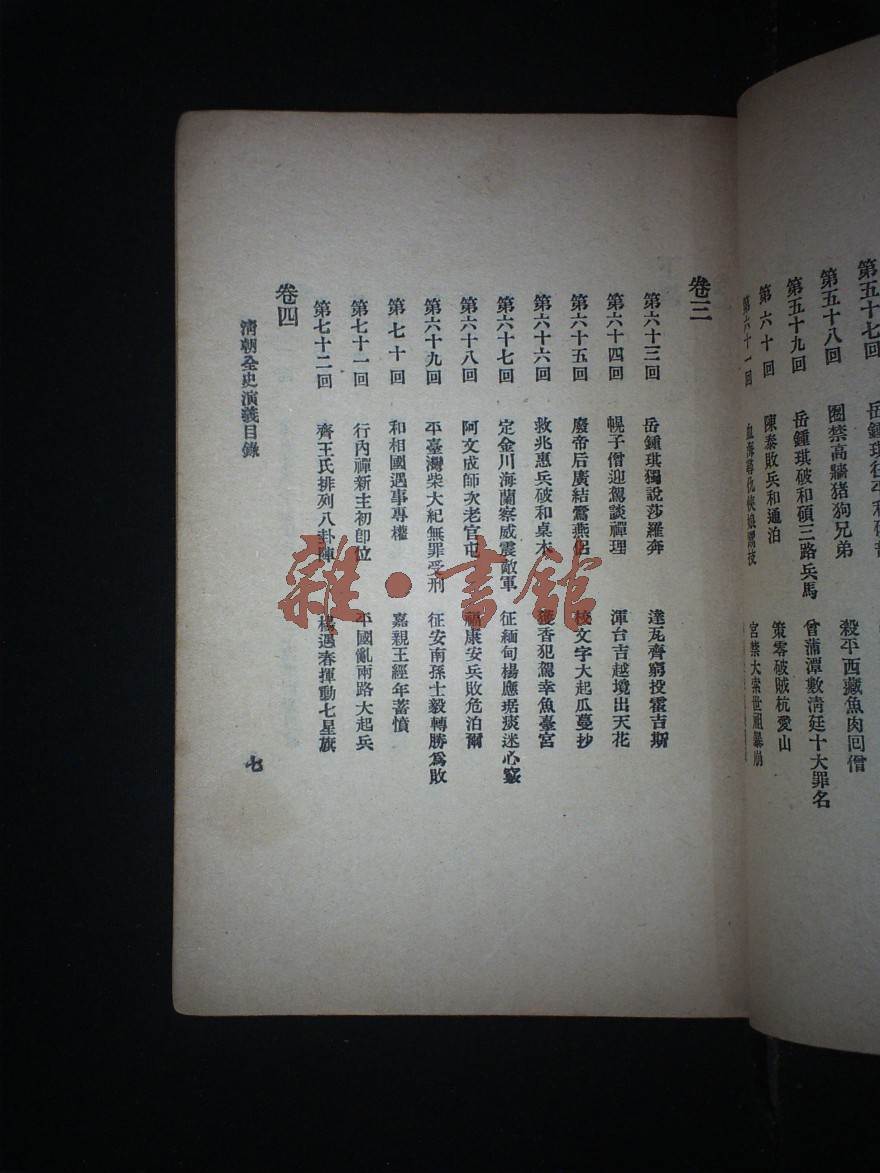 第五十七回
第五十八回 圈禁高牆猪狗兄弟 殺平西藏魚肉回僧
第五十九回 岳鍾琪破和碩三路兵馬 曾蒲潭數淸廷十大罪名
第六十回 陳泰敗兵和通泊 策零破賊杭愛山
第六十一回 血海尋仇俠娘 技 宮禁大索世祖暴崩
卷三
第六十三回 岳鍾琪獨說莎羅奔 達瓦齊窮投霍吉斯
第六十四回 幌子僧迎駕談禪理 渾台吉越境出天花
第六十五回 廢帝后廣結鶯燕侶 校文字大起瓜蔓抄
第六十六回 救兆惠兵破和桌木 獲香犯駕幸魚臺宮
第六十七回 定金川海蘭察威震敵軍 征緬甸楊應琚痰迷心竅
第六十八回 阿文成師次老官屯 福康安兵敗危泊爾
第六十九回 平臺灣柴大紀無罪受刑 征安南孫士毅轉勝爲敗
第七十回 和相國遇事專權 嘉親王經年蓄憤
第七十一回 行內禪新主初卽位 平國亂兩路大起兵
第七十二回 齊王氏排列八卦陣 楊遇春揮動七星旗
卷四
淸朝全史演義目錄
七
雜·書館